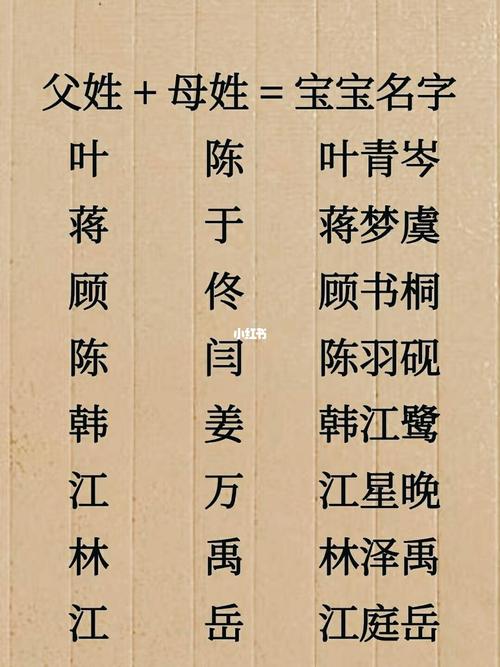 父姓 + 母姓 = 宝宝名字
叶 陈 叶青岑
蒋 于 蒋梦虞
顾 佟 顾书桐
小红书
陈 闫 陈羽砚
韩 姜 韩江鹭
江 万 江星晚
林 禹 林泽禹
江 岳 江庭岳